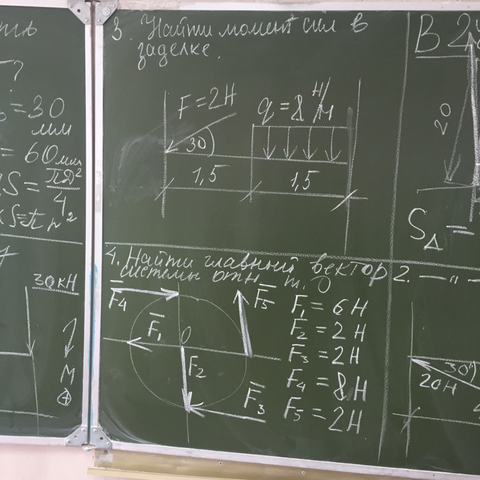 ?
= 30
мм
= 60 мм
S = πД²
4
S = π r²
30кН
М
3. Найти момент сил в
заделке.
F = 2Н
q = 8 Н/м
30
1,5
1,5
4. Найти главный вектор
системы отн. т. О
F₄
F₅
F₁
О
F₂
F₃
F₁ = 6 Н
F₂ = 2 Н
F₃ = 2 Н
F₄ = 8 Н
F₅ = 2 Н
В 2
20
S△ =
2. — „ —
30°
20Н